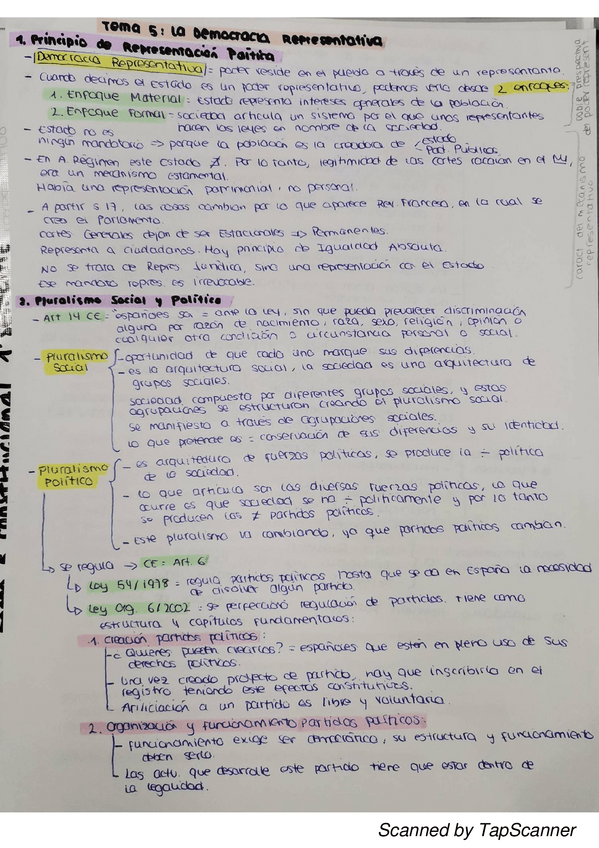 Tema 5: La Democracia Representativa
1. Principio de Representación Política
- Democracia Representativa = poder reside en el pueblo a través de un representante.
- Cuando decimos el estado es un poder representativo, podemos verlo desde 2 enfoques:
1. Enfoque Material = Estado representa intereses generales de la población.
2. Enfoque Formal = sociedad articula un sistema por el que unos representantes
hacen las leyes en nombre de la sociedad.
- Estado no es
ningún mandatario => porque la población es la creadora de < estado
Pod. Públicos
- En A Régimen este Estado ∄. Por lo tanto, legitimidad de las Cortes recaían en el
era un mecanismo estamental.
Había una representación patrimonial, no personal.
- A partir s 17, las cosas cambian por lo que aparece Rev. Francesa, en la cual se
crea el Parlamento.
Cortes Generales dejan de ser Estacionales => Permanentes.
Representa a ciudadanos. Hay principio de Igualdad Absoluta.
No se trata de Repres Jurídica, sino una representación con el Estado.
Ese mandato repres. es irrevocable.
doble perspectiva
del poder represent
caract del mecanismo
representativo
2. Pluralismo Social y Político
- Art 14 CE = españoles son = ante la ley, sin que pueda prevalecer discriminación
alguna por razón de nacimiento, raza, sexo, religión, opinión o
cualquier otra condición o circunstancia personal o social.
- Pluralismo
Social
- oportunidad de que cada uno marque sus diferencias.
- es la arquitectura social, la sociedad es una arquitectura de
grupos sociales.
Sociedad compuesta por diferentes grupos sociales, y estas
agrupaciones se estructuran creando el pluralismo social.
Se manifiesta a través de agrupaciones sociales.
Lo que pretende es = conservación de sus diferencias y su identidad.
- Pluralismo
Político
- es arquitectura de fuerzas políticas, se produce la ÷ política
de la sociedad.
- Lo que articula son las diversas fuerzas políticas, lo que
ocurre es que sociedad se ha ÷ políticamente y por lo tanto
se producen los ≠ partidos políticos.
- Este pluralismo va cambiando, ya que partidos políticos cambian.
↳ se regula → CE: Art. 6
↳ Ley 54/1978 = regula partidos políticos hasta que se da en España la necesidad
de disolver algún partido.
↳ Ley Org. 6/2002 = se perfeccionó regulación de partidos. Tiene como
estructura 4 capítulos fundamentales:
1. Creación partidos políticos:
- ¿Quienes pueden crearlos? = españoles que estén en pleno uso de sus
derechos políticos.
- Una vez creado proyecto de partido, hay que inscribirlo en el
registro teniendo este efectos constitutivos.
- Afiliciación a un partido es libre y voluntaria.
2. Organización y funcionamiento partidos políticos:
- funcionamiento exige ser democrático, su estructura y funcionamiento
deben serlo.
- Las actu. que desarrolle este partido tiene que estar dentro de
la legalidad.
Scanned by TapScanner